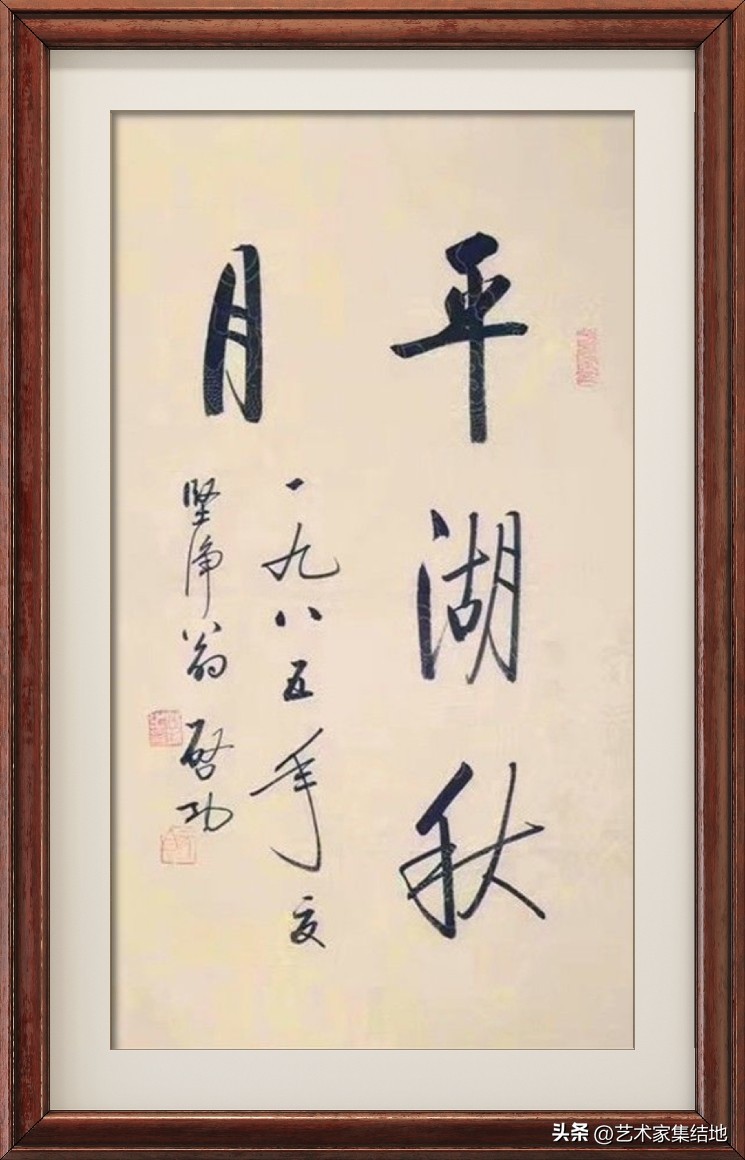 平湖秋
月
一九八五年夏
坚净翁启功
头条 @艺术家集结地